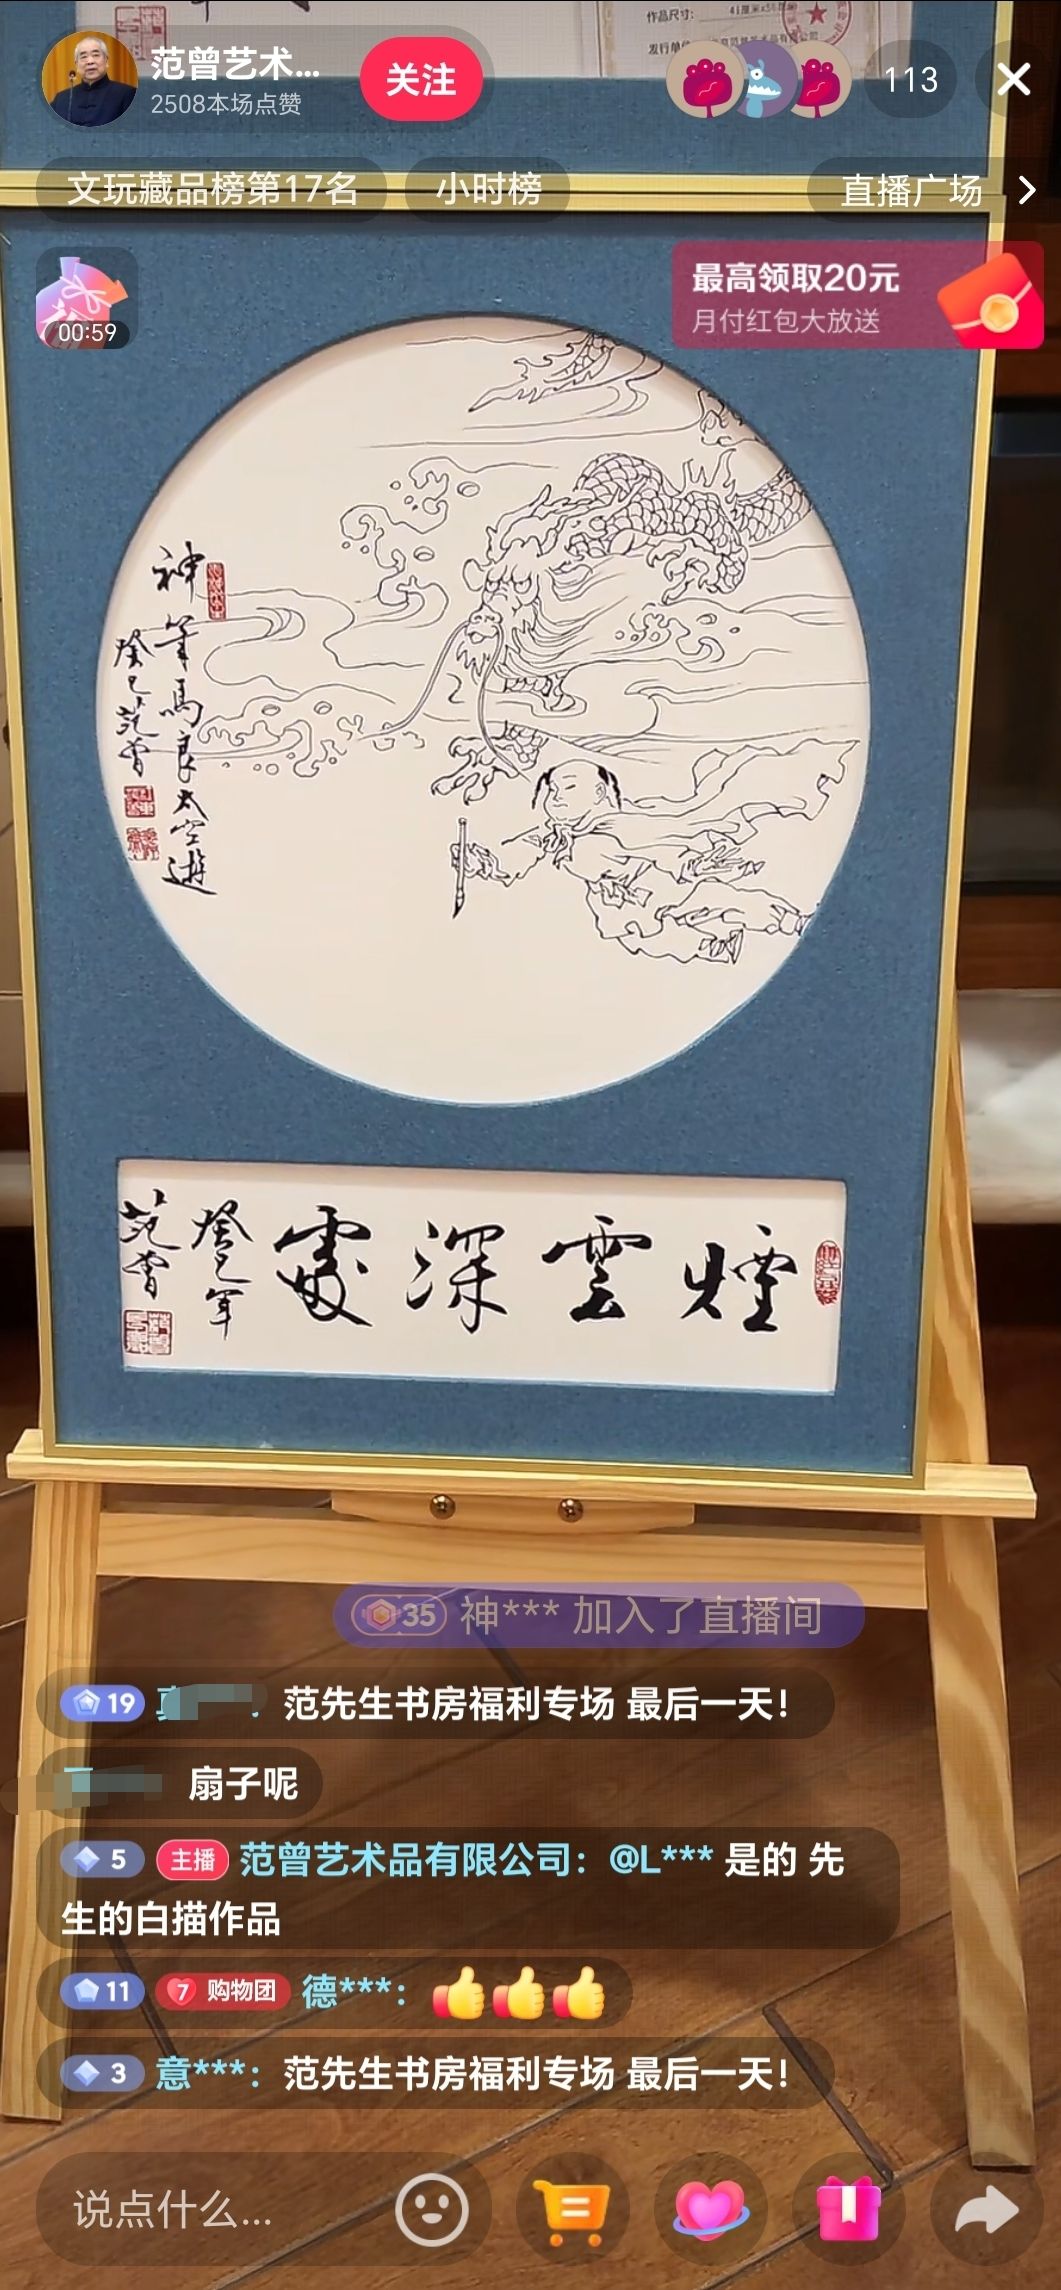 作品尺寸：
范曾艺术...
关注
2508本场点赞
113
文玩藏品榜第17名
小时榜
直播广场
00:59
最高领取20元
月付红包大放送
神筆馬良太空遊
癸巳范曾
煙雲深處
癸巳年
范曾
35 神*** 加入了直播间
19 范先生书房福利专场 最后一天！
扇子呢
5 主播 范曾艺术品有限公司：@L*** 是的 先
生的白描作品
11 7 购物团 德***：
3 意***：范先生书房福利专场 最后一天！
说点什么...